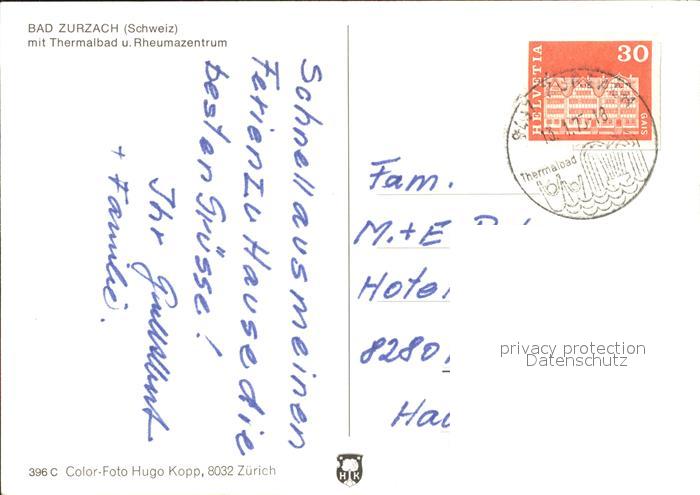 BAD ZURZACH (Schweiz)
mit Thermalbad u. Rheumazentrum
Schnell aus meinen
Ferien zu Hause die
besten Grüsse!
Ihr
+ Familie.
HELVETIA
30
GAIS
Thermalbad
Fam.
M.+E
Hote
8280
privacy protection
Datenschutz
396 C Color-Foto Hugo Kopp, 8032 Zürich
H K